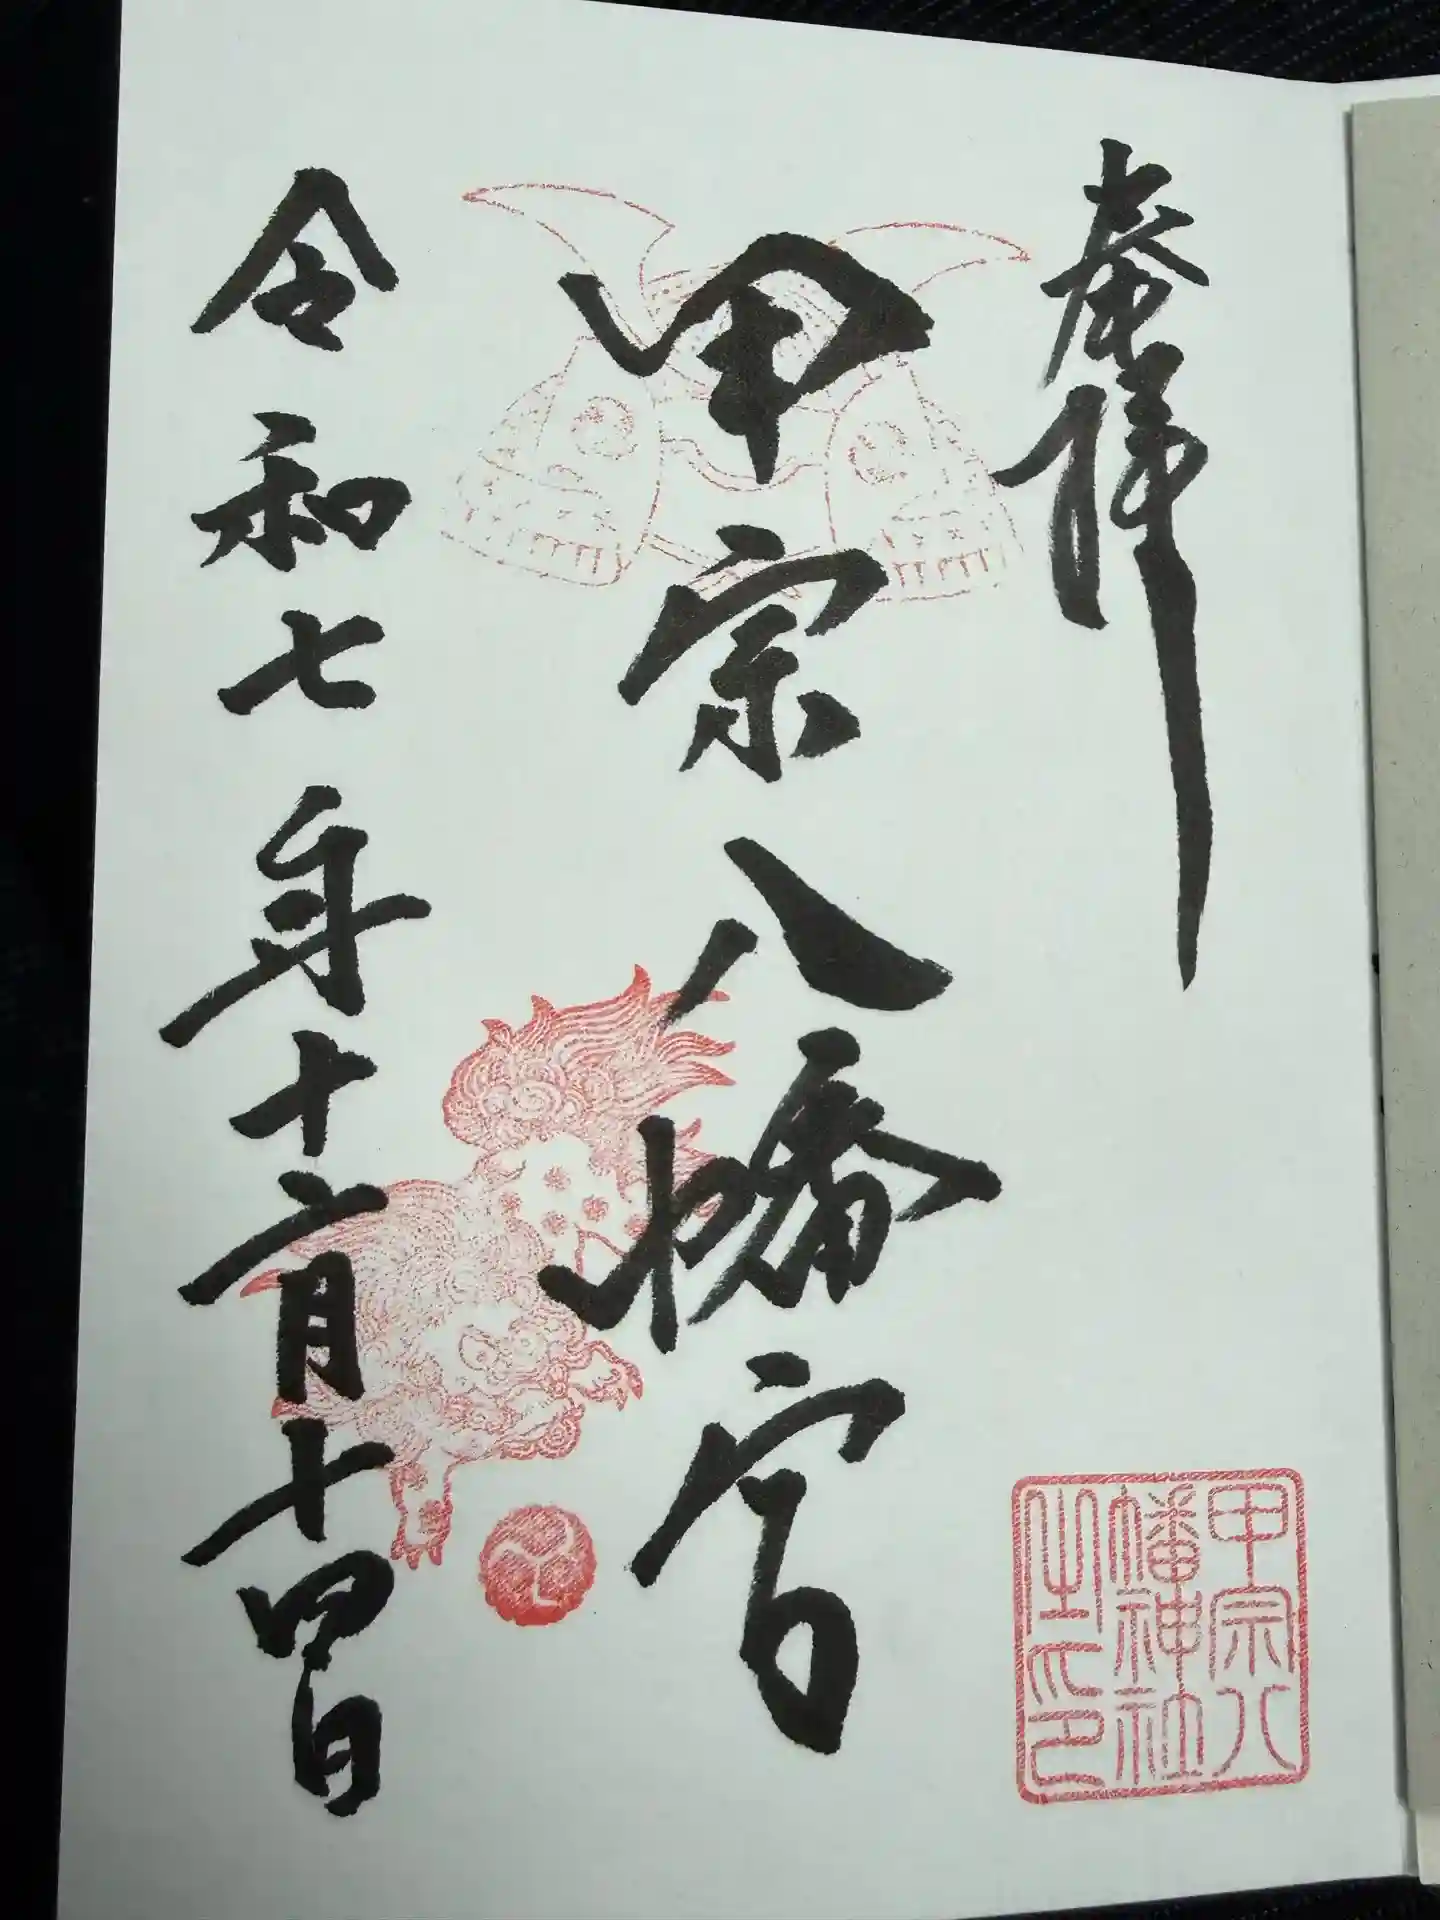 奉拝
甲宗八幡宮
令和七年十二月十四日
甲宗八
幡神社
之印